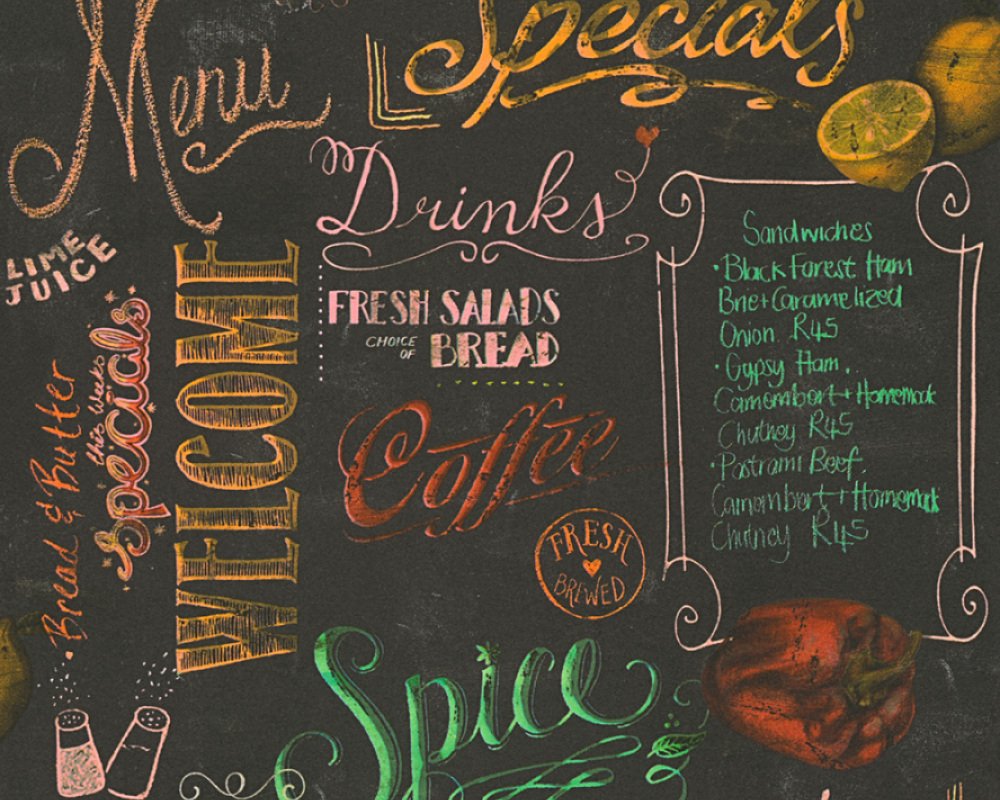 Menu
Specials
Drinks
LIME
JUICE
WELCOME
this week's
Specials
• Bread & Butter
FRESH SALADS
CHOICE
OF
BREAD
Coffee
FRESH
BREWED
Spice
Sandwiches
• Black Forest Ham
Brie + Caramelized
Onion R45
• Gypsy Ham.
Camembert + Homemade
Chutney R45
• Pastrami Beef.
Camembert + Homemade
Chutney R45